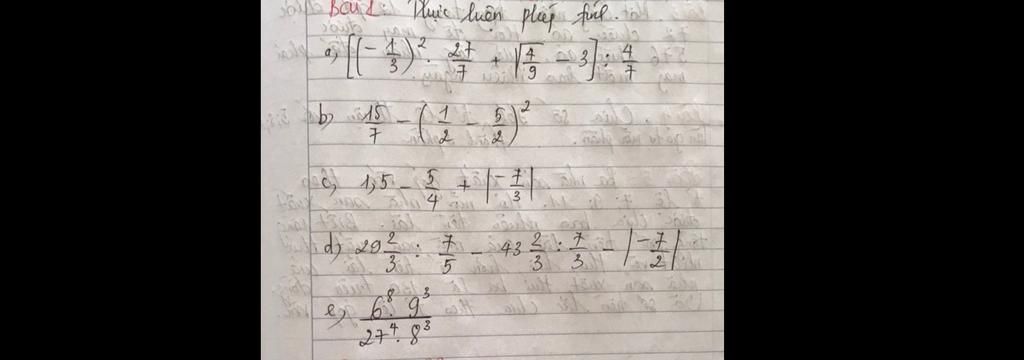 Bài 1 Thực luôn phép tính.
a, [(-1/3)² . 27/7 + √4/9 - 3] : 4/7
b, 15/7 - (1/2 - 5/2)²
c, 1,5 - 5/4 + |-7/3|
d, 29 2/3 : 7/5 - 43 2/3 : 7/3 - |-7/2|
e, 6⁸ . 9³ / 27⁴ . 8³